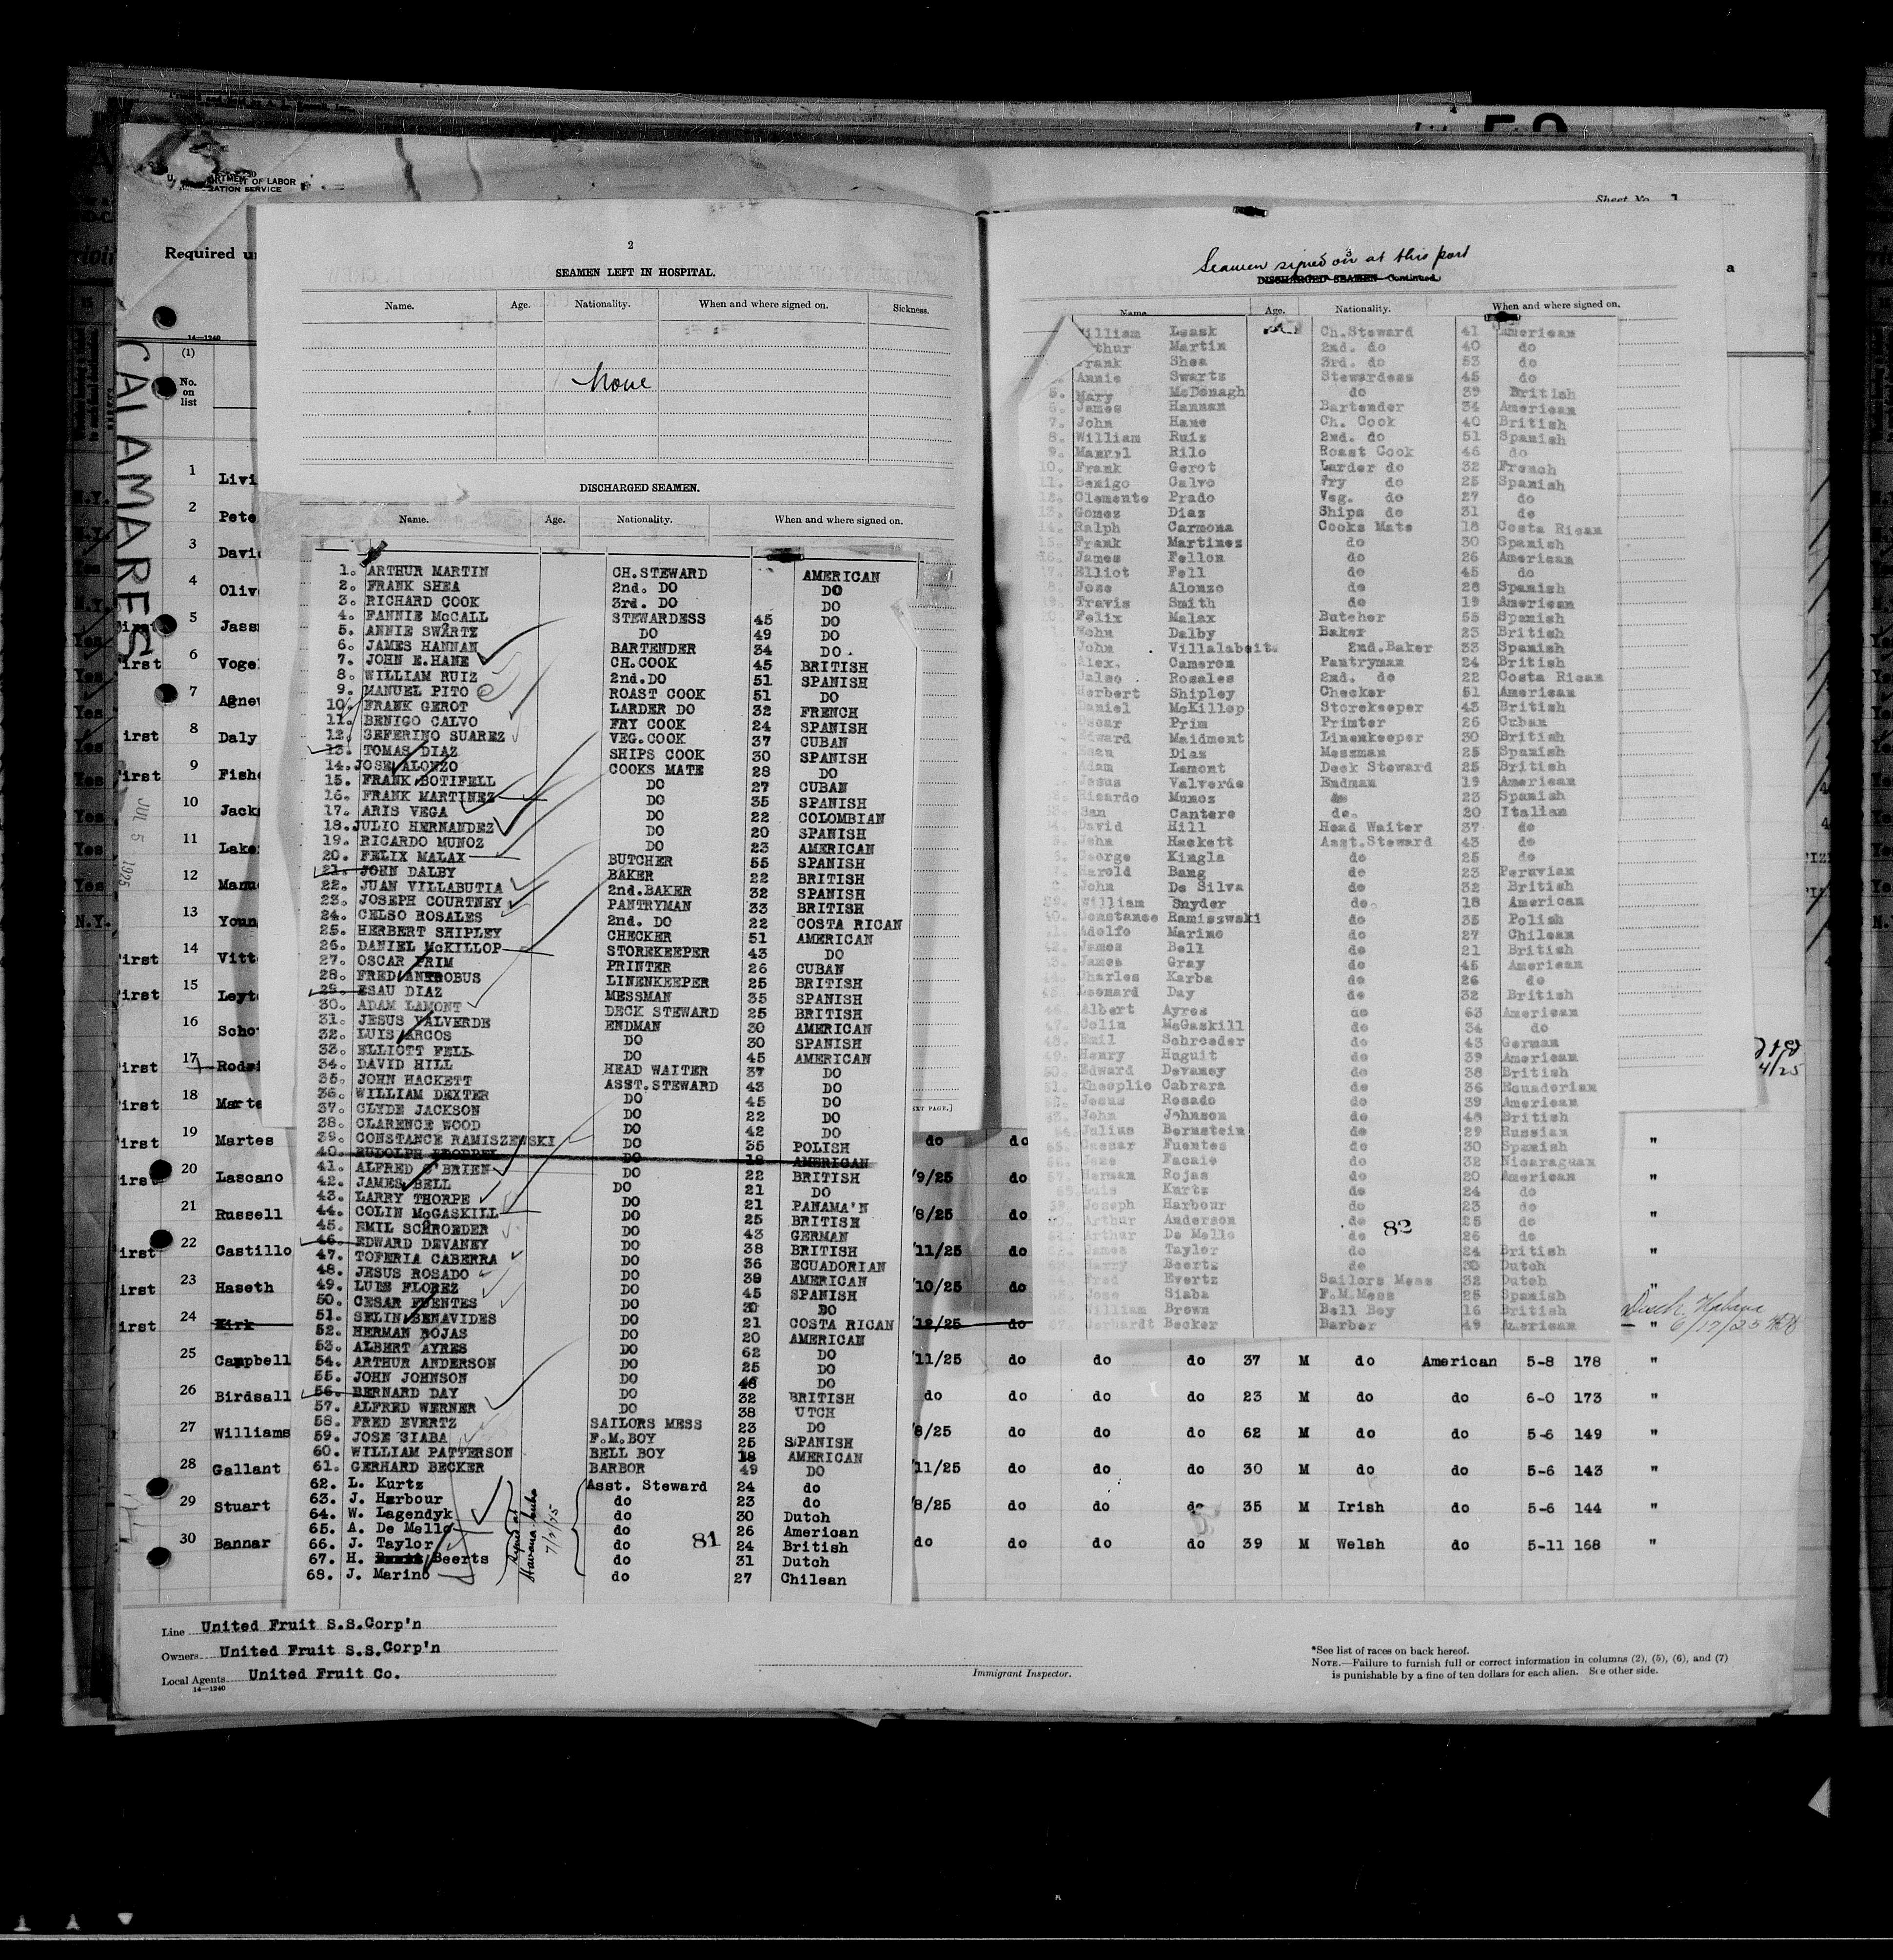 U. DEPARTMENT OF LABOR
Required un
14—1240
CALAMARES
JUL 5 1925
(1)
No. on list
1 Livi
2 Pete
3 Davi
4 Oliv
5 Jass
6 Vogel
7 Agnew
8 Daly
9 Fish
10 Jack
11 Lake
12 Manu
13 Youn
14 Vitt
15 Leyt
16 Scho
17 Rodri
18 Marte
19 Martes
20 Lascano
21 Russell
22 Castillo
23 Haseth
24 Kirk
25 Campbell
26 Birdsall
27 Williams
28 Gallant
29 Stuart
30 Bannar
2
SEAMEN LEFT IN HOSPITAL.
Name. Age. Nationality. When and where signed on. Sickness.
None
DISCHARGED SEAMEN.
Name. Age. Nationality. When and where signed on.
1. ARTHUR MARTIN CH.STEWARD AMERICAN
2. FRANK SHEA 2nd. DO DO
3. RICHARD COOK 3rd. DO DO
4. FANNIE McCALL STEWARDESS 45 DO
5. ANNIE SWARTZ DO 49 DO
6. JAMES HANNAN BARTENDER 34 DO
7. JOHN E.HANE CH.COOK 45 BRITISH
8. WILLIAM RUIZ 2nd.DO 51 SPANISH
9. MANUEL PITO ROAST COOK 51 DO
10. FRANK GEROT LARDER DO 32 FRENCH
11. BENIGO CALVO FRY COOK 24 SPANISH
12. SEFERINO SUAREZ VEG.COOK 37 CUBAN
13. TOMAS DIAZ SHIPS COOK 30 SPANISH
14. JOSE ALONZO COOKS MATE 28 DO
15. FRANK BOTIFELL DO 27 CUBAN
16. FRANK MARTINEZ DO 35 SPANISH
17. ARIS VEGA DO 22 COLOMBIAN
18. JULIO HERNANDEZ DO 20 SPANISH
19. RICARDO MUNOZ DO 23 AMERICAN
20. FELIX MALAX BUTCHER 55 SPANISH
21. JOHN DALBY BAKER 22 BRITISH
22. JUAN VILLABUTIA 2nd.BAKER 32 SPANISH
23. JOSEPH COURTNEY PANTRYMAN 33 BRITISH
24. CELSO ROSALES 2nd. DO 22 COSTA RICAN
25. HERBERT SHIPLEY CHECKER 51 AMERICAN
26. DANIEL McKILLOP STOREKEEPER 43 DO
27. OSCAR PRIM PRINTER 26 CUBAN
28. FRED ANTROBUS LINENKEEPER 25 BRITISH
29. ESAU DIAZ MESSMAN 35 SPANISH
30. ADAM LAMONT DECK STEWARD 25 BRITISH
31. JESUS VALVERDE ENDMAN 30 AMERICAN
32. LUIS ARCOS DO 30 SPANISH
33. ELLIOTT FELL DO 45 AMERICAN
34. DAVID HILL HEAD WAITER 37 DO
35. JOHN HACKETT ASST.STEWARD 43 DO
36. WILLIAM DEXTER DO 45 DO
37. CLYDE JACKSON DO 22 DO
38. CLARENCE WOOD DO 42 DO
39. CONSTANCE RAMISZEWSKI DO 35 POLISH
40. RUDOLPH DO 18 AMERICAN
41. ALFRED O'BRIEN DO 22 BRITISH
42. JAMES BELL DO 21 DO
43. LARRY THORPE DO 21 PANAMA'N
44. COLIN McGASKILL DO 25 BRITISH
45. EMIL SCHROEDER DO 43 GERMAN
46. EDWARD DEVANEY DO 38 BRITISH
47. TOFERIA CABERRA DO 36 ECUADORIAN
48. JESUS ROSADO DO 39 AMERICAN
49. LUIS FLOREZ DO 45 SPANISH
50. CESAR FUENTES DO 30 DO
51. SELIN BENAVIDES DO 21 COSTA RICAN
52. HERMAN ROJAS DO 20 AMERICAN
53. ALBERT AYRES DO 62 DO
54. ARTHUR ANDERSON DO 25 DO
55. JOHN JOHNSON DO 48 DO
56. BERNARD DAY DO 32 BRITISH
57. ALFRED WERNER DO 38 UTCH
58. FRED EVERTZ SAILORS MESS 23 DO
59. JOSE SIABA F.M.BOY 25 SPANISH
60. WILLIAM PATTERSON BELL BOY 18 AMERICAN
61. GERHARD BECKER BARBOR 49 DO
62. L. Kurtz Asst. Steward 24 do
63. J. Harbour do 23 do
64. W. Lagendyk do 30 Dutch
65. A. De Mello do 26 American
66. J. Taylor do 24 British
67. H. Beerts do 31 Dutch
68. J. Marino do 27 Chilean
Signed at Havana, Cuba
81
Sheet No. 1
Seamen signed on at this port
DISCHARGED SEAMEN—Continued
Name Age. Nationality. When and where signed on.
illiam Leask Ch.Steward 41 American
thur Martin 2nd. do 40 do
rank Shea 3rd. do 53 do
Annie Swartz Stewardess 45 do
5. Mary McDonagh do 39 British
6. James Hannan Bartender 34 American
7. John Hane Ch. Cook 40 British
8. William Ruiz 2nd. do 51 Spanish
9. Manuel Rilo Roast Cook 46 do
10. Frank Gerot Larder do 32 French
11. Benigo Calvo Fry do 25 Spanish
12. Clemente Prado Veg. do 27 do
13. Gomez Diaz Ships do 31 do
14. Ralph Carmona Cooks Mate 18 Costa Rican
15. Frank Martinez do 30 Spanish
16. James Fellon do 26 American
17. Elliot Fell do 45 do
8. Jose Alonzo do 28 Spanish
Travis Smith do 19 American
Felix Malax Butcher 55 Spanish
John Dalby Baker 23 British
John Villalabeita 2nd.Baker 33 Spanish
Alex. Cameron Pantryman 24 British
Celso Rosales 2nd. do 22 Costa Rican
Herbert Shipley Checker 51 American
Daniel McKillop Storekeeper 43 British
Oscar Prim Printer 26 Cuban
Edward Maidment Linenkeeper 30 British
Esau Diaz Messman 25 Spanish
Adam Lamont Deck Steward 25 British
Jesus Valverde Endman 19 American
Ricardo Munoz do 23 Spanish
Dan Cantero do. 20 Italian
David Hill Head Waiter 37 do
John Hackett Asst.Steward 43 do
George Kingla do 25 do
Harold Bang do 23 Peruvian
John De Silva do 32 British
39. William Snyder do. 18 American
40. Constance Ramiszwski do 35 Polish
Adolfo Marino do 27 Chilean
42. James Bell do 21 British
James Gray do 45 American
Charles Karba do 26 do
45. Leonard Day do 32 British
46. Albert Ayres do 63 American
47. Colin McGaskill do 34 do
48. Emil Schroeder do 43 German
49. Henry Huguit do 39 American
50. Edward Devaney do 38 British
51. Theoplie Cabrara do 36 Ecuadorian
52. Jesus Rosado do 39 American
53. John Johnson do 48 British
54. Julius Bernstein do 29 Russian
55. Caesar Fuentes do 30 Spanish
56. Jose Facaio do 32 Nicaraguan
57. Herman Rojas do 20 American
Luis Kurtz do 24 do
59. Joseph Harbour do 23 do
Arthur Anderson do 25 do
Arthur De Mello do 26 do
James Taylor do 24 British
Harry Beerts do 30 Dutch
Fred Evertz Sailors Mess 32 Dutch
Jose Siaba F.M.Mess 25 Spanish
William Brown Bell Boy 16 British
Gerhardt Becker Barber 49 American
82
do do "
/9/25 do "
/8/25 do "
/11/25 do "
/10/25 do "
12/25 do " Disch Habana 6/17/25
/11/25 do do do 37 M do American 5-8 178 "
do do do do 23 M do do 6-0 173 "
8/25 do do do 62 M do do 5-6 149 "
11/25 do do do 30 M do do 5-6 143 "
/8/25 do do do 35 M Irish do 5-6 144 "
do do do do 39 M Welsh do 5-11 168 "
Line United Fruit S.S.Corp'n
Owners United Fruit S.S.Corp'n
Local Agents United Fruit Co.
14—1240
Immigrant Inspector.
*See list of races on back hereof.
NOTE.—Failure to furnish full or correct information in columns (2), (5), (6), and (7)
is punishable by a fine of ten dollars for each alien. See other side.